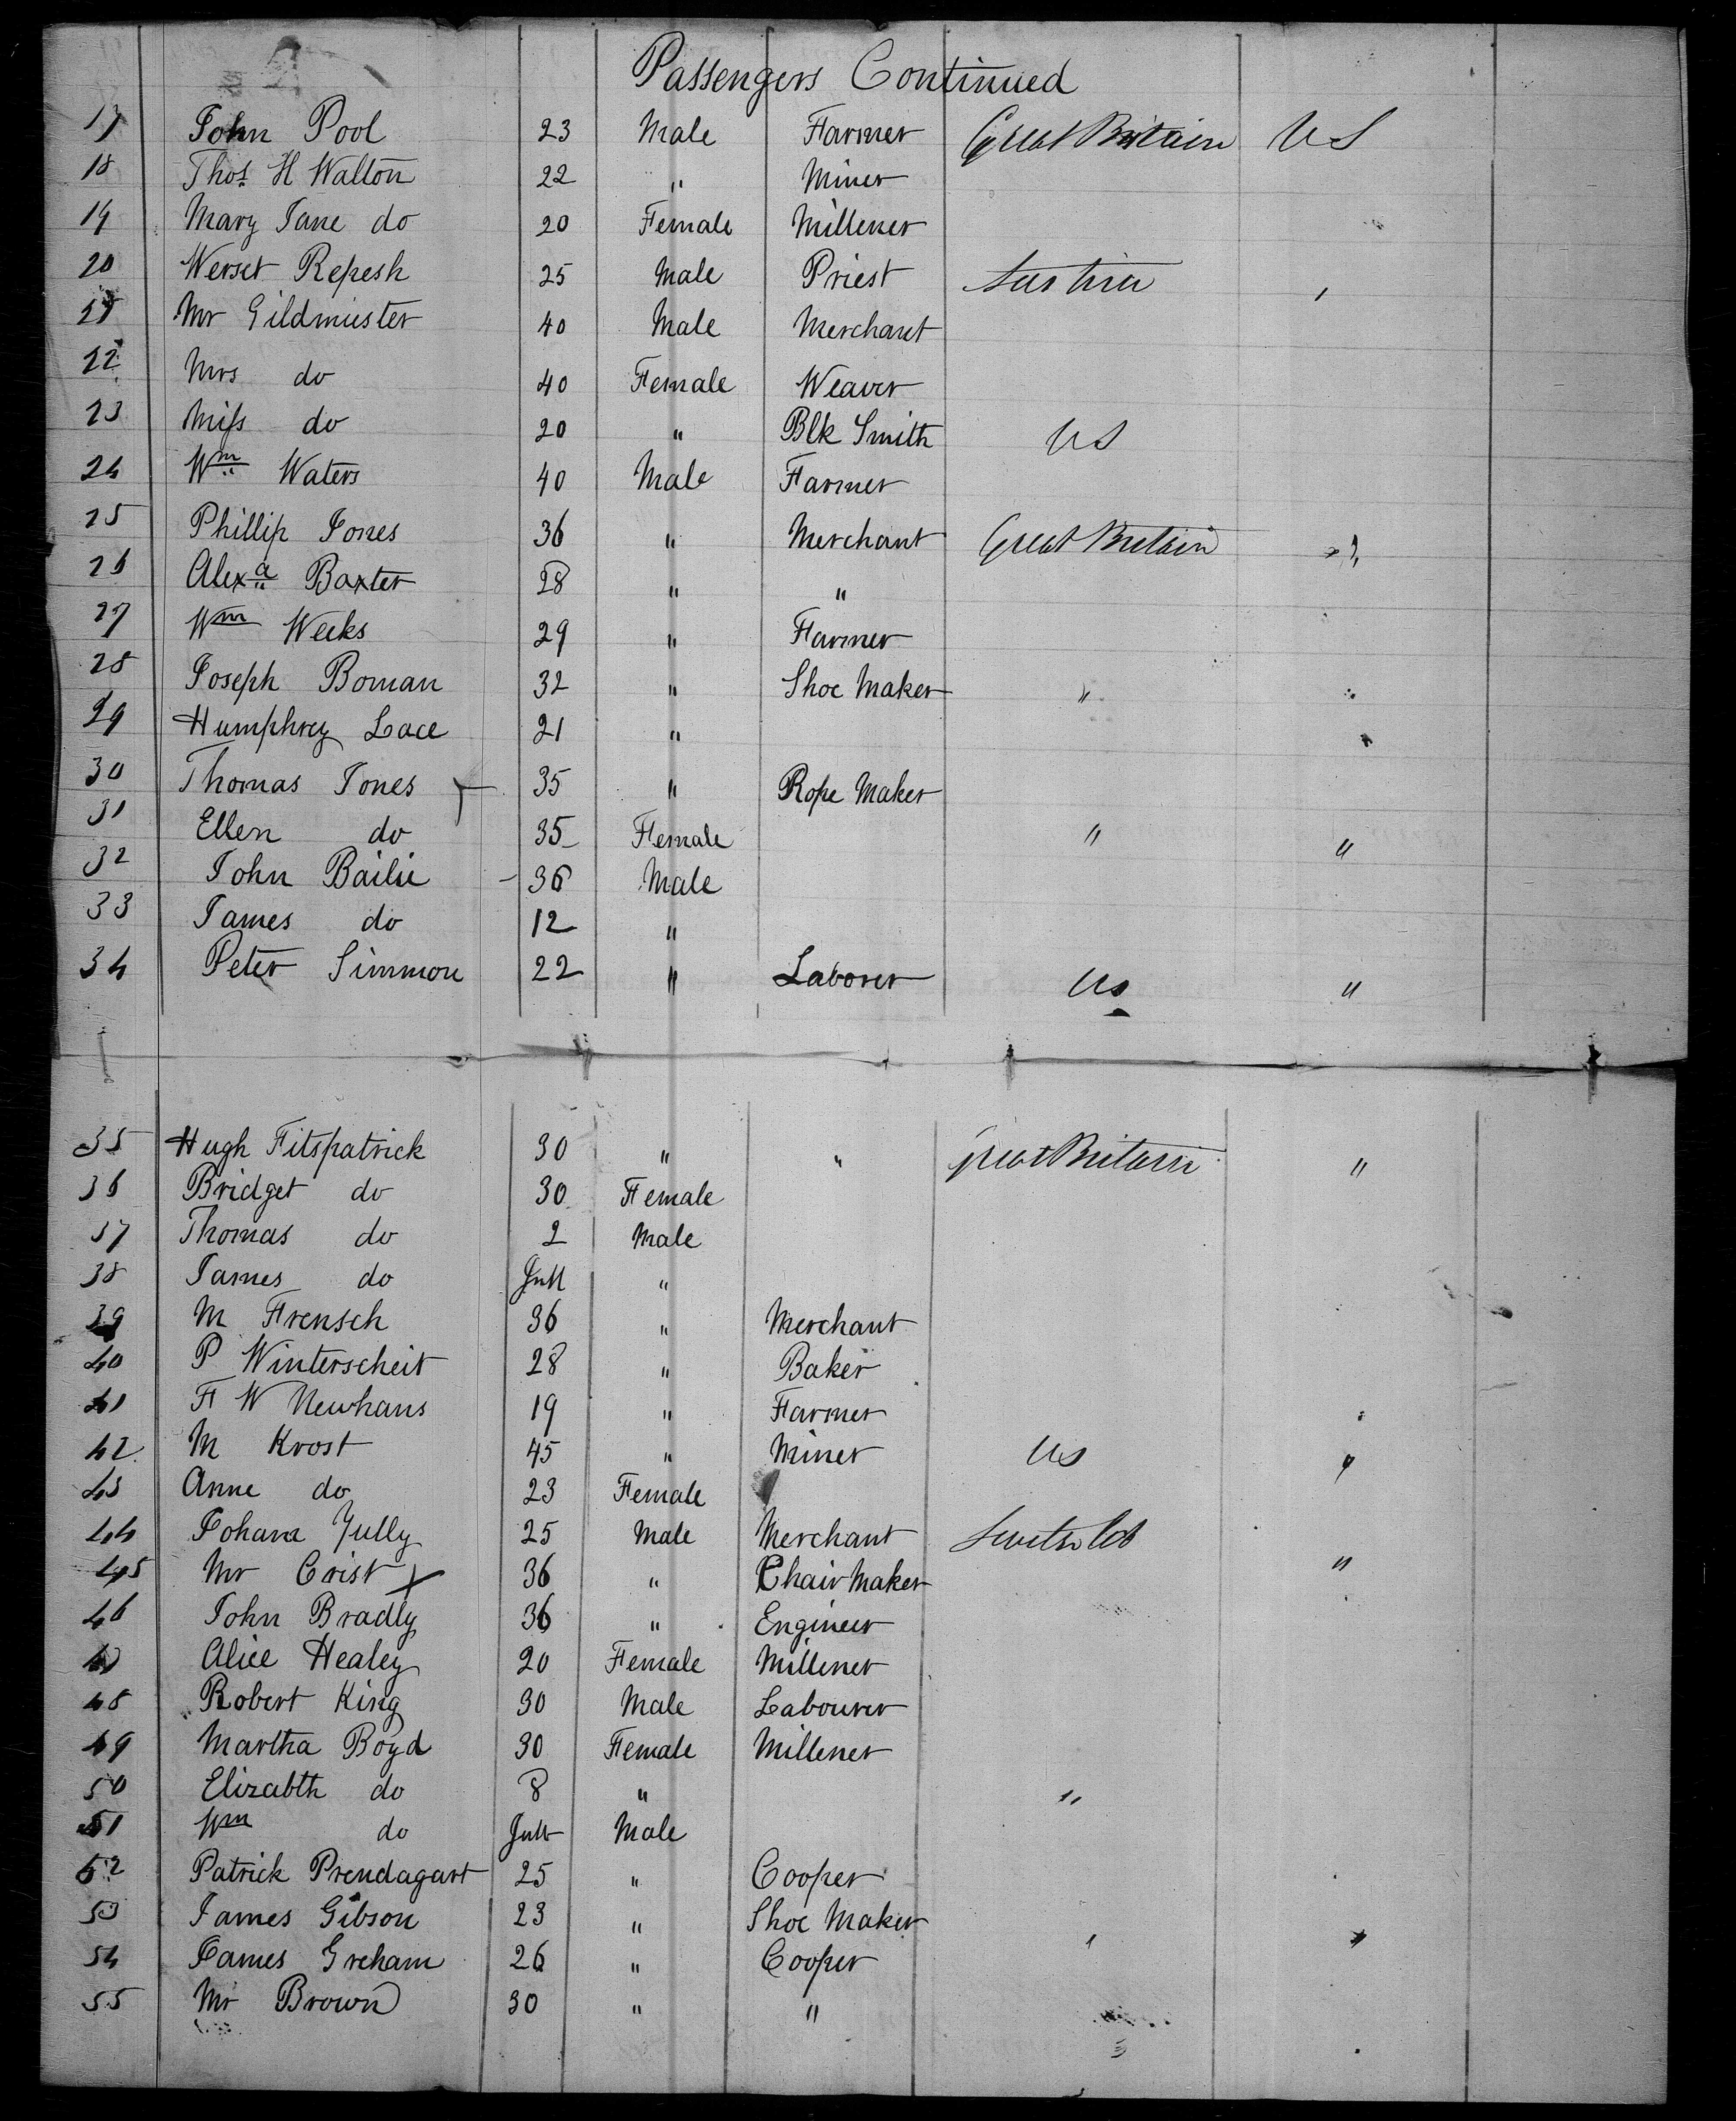 Passengers Continued
17 John Pool 23 Male Farmer Great Britain US
18 Thos. H Walton 22 " Miner
19 Mary Jane do 20 Female Millener
20 Werset Repesh 25 Male Priest Austria "
21 Mr Gildmiester 40 Male Merchant
22 Mrs do 40 Female Weaver
23 Miss do 20 " Blk Smith US
24 Wm Waters 40 Male Farmer
25 Phillip Jones 36 " Merchant Great Britain "
26 Alexa Baxter 28 " "
27 Wm Weeks 29 " Farmer
28 Joseph Boman 32 " Shoe Maker "
29 Humphrey Lace 21 "
30 Thomas Jones 35 " Rope Maker
31 Ellen do 35 Female " "
32 John Bailie 36 Male
33 James do 12 "
34 Peter Simmon 22 " Laborer US "
35 Hugh Fitspatrick 30 " " Great Britain "
36 Bridget do 30 Female
37 Thomas do 2 Male
38 James do Inft "
39 M Frensch 36 " Merchant
40 P Winterscheit 28 " Baker
41 F W Newhans 19 " Farmer
42 M Krost 45 " Miner US "
43 Anne do 23 Female
44 Johana Jully 25 Male Merchant
45 Mr Crist X 36 " Chair Maker "
46 John Bradly 36 " Engineer
47 Alice Healey 20 Female Millener
48 Robert King 30 Male Labourer
49 Martha Boyd 30 Female Millener
50 Elizabth do 8 " "
51 Wm do Inft Male
52 Patrick Prendagart 25 " Cooper
53 James Gibson 23 " Shoe Maker
54 James Greham 26 " Cooper
55 Mr Brown 30 " "